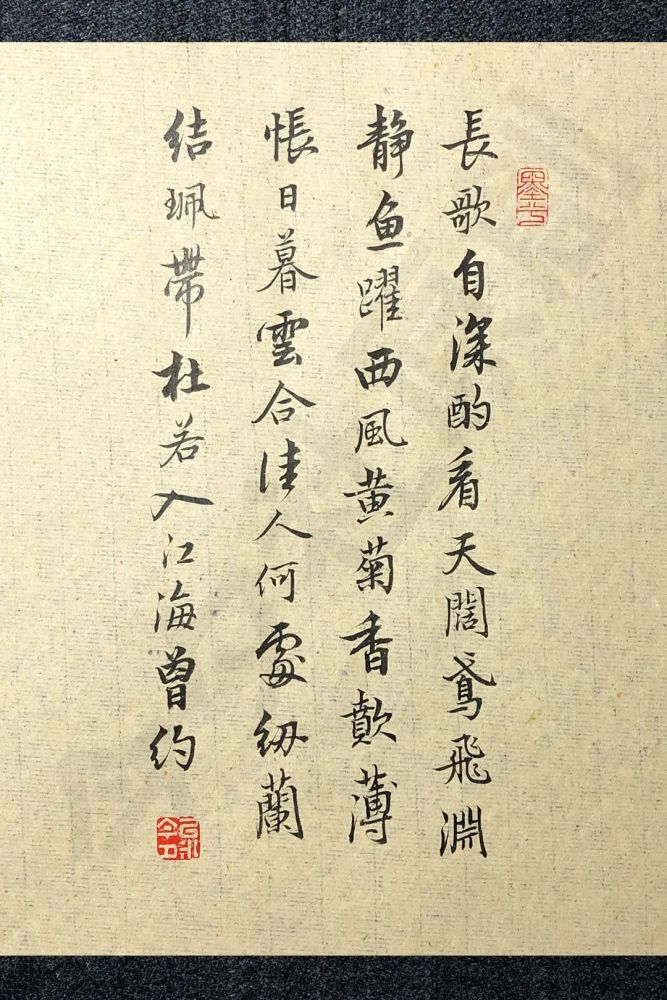 長歌自深酌看天闊鳶飛淵
静魚躍西風黄菊香歕薄
悵日暮雲合佳人何處紉蘭
结珮帶杜若入江海曾约